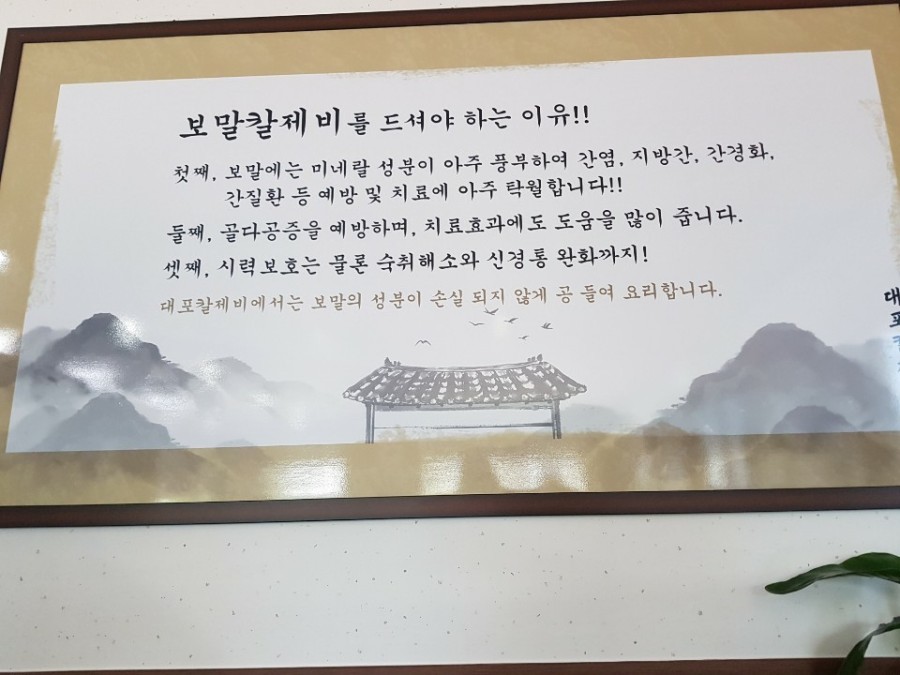 보말칼제비를 드셔야 하는 이유!!
첫째, 보말에는 미네랄 성분이 아주 풍부하여 간염, 지방간, 간경화,
간질환 등 예방 및 치료에 아주 탁월합니다!!
둘째, 골다공증을 예방하며, 치료효과에도 도움을 많이 줍니다.
셋째, 시력보호는 물론 숙취해소와 신경통 완화까지!
대포칼제비에서는 보말의 성분이 손실 되지 않게 공 들여 요리합니다.
대
포